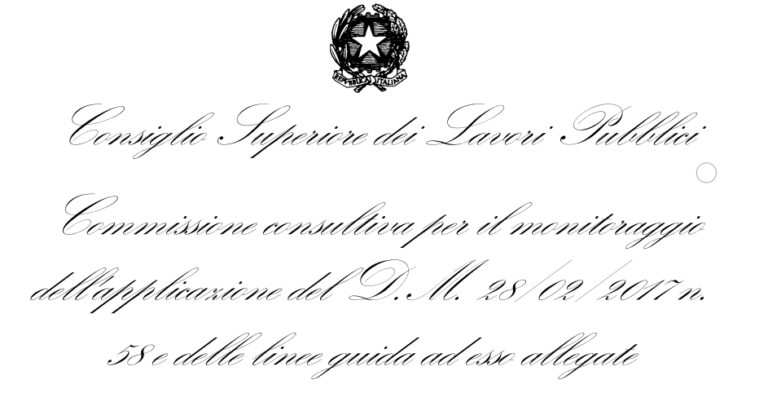 REPVBBLICA ITALIANA
Consiglio Superiore dei Lavori Pubblici
Commissione consultiva per il monitoraggio
dell'applicazione del D.M. 28/02/2017 n.
58 e delle linee guida ad esso allegate